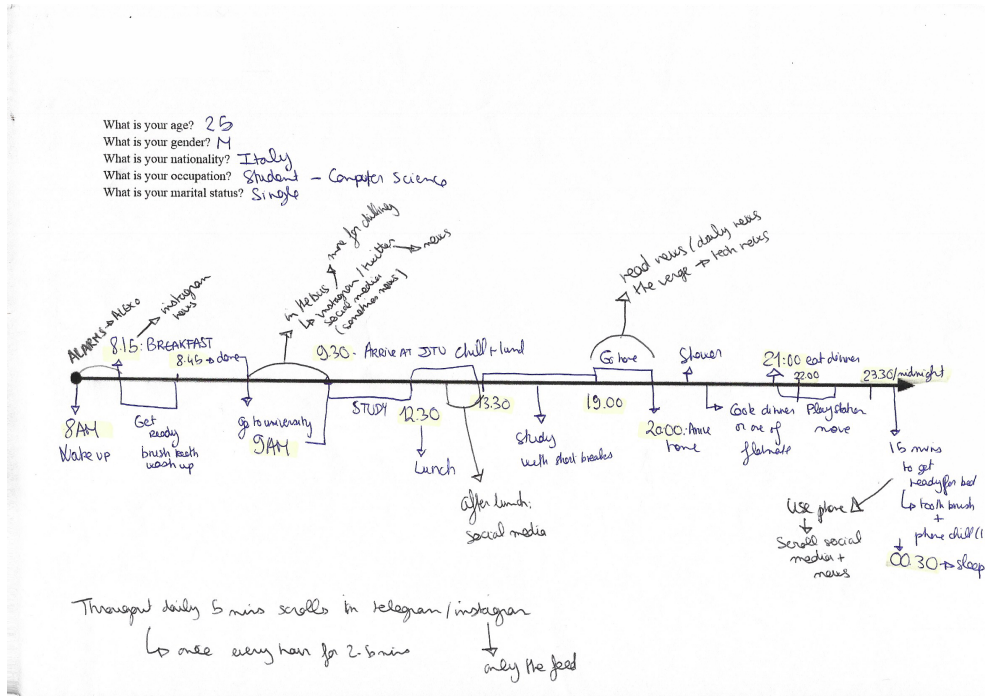 What is your age? 25
What is your gender? M
What is your nationality? Italy
What is your occupation? Student - Computer Science
What is your marital status? Single
ALARMS → ALEXA
8.15: BREAKFAST
→ instagram
news
8.45 → done
in the bus
↳ instagram/twitter → news
social media
(sometimes news)
more for chilling
9.30 - ARRIVE AT DTU
chill + lunch
read news (daily news
the verge → tech news
Go home
Shower
21:00 eat dinner
22:00
23.30/midnight
8AM
Wake up
Get
Ready
brush teeth
wash up
go to university
9AM
STUDY
12.30
Lunch
13.30
after lunch:
social media
Study
with short breaks
19.00
20:00: Arrive
home
Cook dinner
or one of
flatmate
Playstation
movie
15 mins
to get
ready for bed
↳ tooth brush
+
phone chill
00.30 → sleep
Use phone
Scroll social
media +
news
Througout daily 5 mins scrolls in telegram/instagram
↳ once every hour for 2-5 mins
only the feed